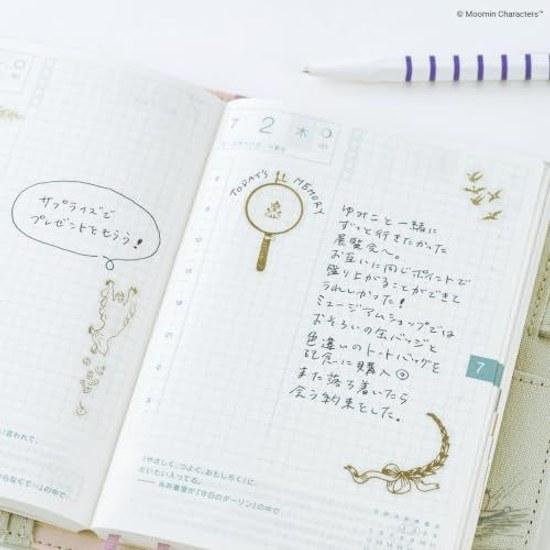 © Moomin Characters™
サプライズで
プレゼントをもらう!
言われて、
らなくて…」の中で
7 2 木
TODAY'S MEMORY
ゆみこと一緒に
ずっと行きたかった
展覧会へ。
お互いに同じポイントで
盛り上がることができて
うれしかった!
ミュージアムショップでは
おそろいの缶バッジと
色違いのトートバッグを
記念に購入
また落ち着いたら
会う約束をした。
7
「やさしく、つよく、おもしろく」に、
だいたい入ってる。
── 糸井重里が『今日のダーリン』の中で